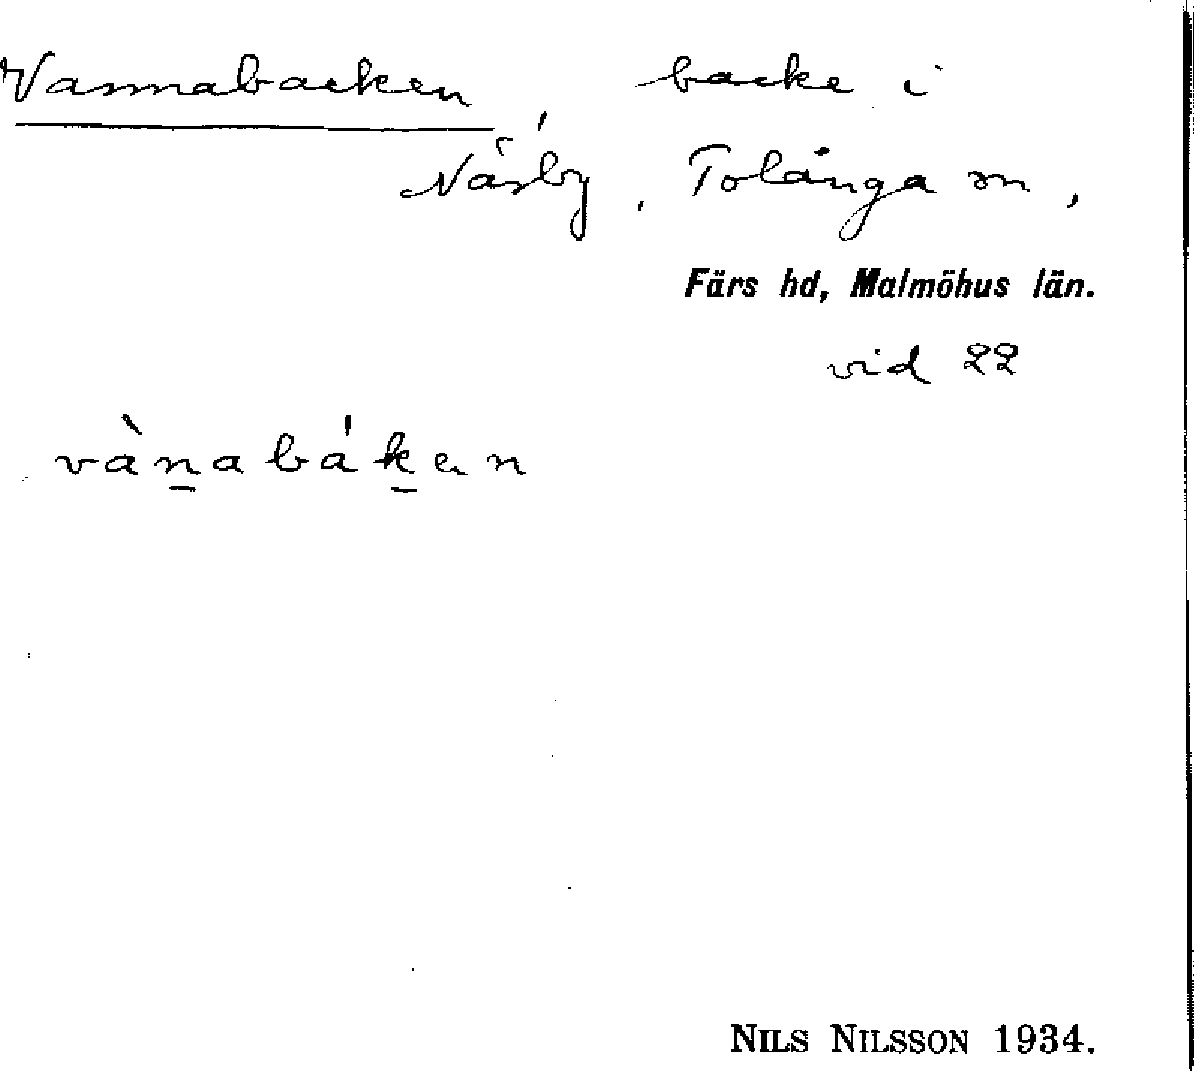 Vannabacken, backe i
Näsby, Tolånga sn,
Färs hd, Malmöhus län.
vid 22
vànabákan
NILS NILSSON 1934.